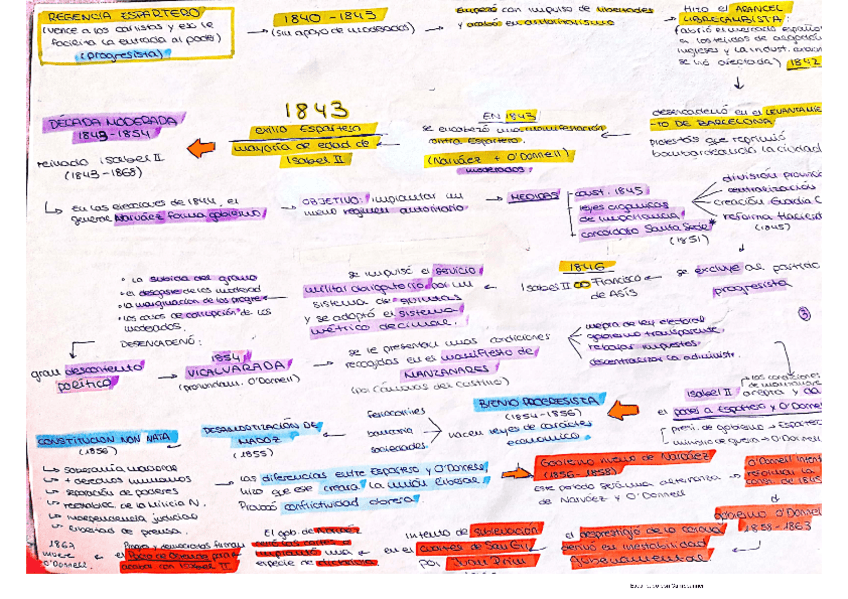 REGENCIA ESPARTERO
(vence a los carlistas y eso le
facilita la entrada al poder)
(progresista)
1840 - 1843
(sin apoyo de moderados)
Empezó con impulso de libertades
y acabó en autoritarismo
Hizo el ARANCEL
LIBRECAMBISTA:
(abrió el mercado español
a los tejidos de algodón
ingleses y la indust.
se vio afectada) 1842
desencadenó en el LEVANTAMIE-
TO DE BARCELONA
protestas que reprimió
bombardeando la ciudad
EN 1843
se encabezó una manifestación
contra Espartero.
(Narváez + O'Donnell)
moderados.
1843
exilio Espartero
mayoría de edad de
Isabel II
DÉCADA MODERADA
1843-1854
reinado Isabel II
(1843-1868)
en las elecciones de 1844, el
general Narváez forma gobierno
OBJETIVO: implantar un
nuevo régimen autoritario
MEDIDAS
const. 1845
leyes orgánicas
de importancia
concordato Santa Sede*
(1851)
división provinc
centralización
creación Guardia C
reforma Hacienda
(1845)
se excluye al partido
progresista
1846
Isabel II ∞ Francisco
de Asís
se impulsó el servicio
militar obligatorio por un
sistema de quintas
y se adoptó el sistema
métrico decimal.
• la subida del grano
• el desgaste de los moderad
• la marginación de los progre
• los casos de corrupción de los
moderados.
DESENCADENÓ:
gran descontento
político
1854
VICALVARADA
(pronunciam. O'Donnell)
se le presentan unas condiciones
recogidas en el manifiesto de
MANZANARES
(por Cánovas del Castillo)
mejora de ley electoral
gobierno transparente
rebajar impuestos
descentralizar la administr.
3
las condiciones
de manzanares
Isabel II acepta y da
el poder a Espartero y O'Donnel
presi. de gobierno → Esparter
ministro de guerra → O'Donnell
BIENIO PROGRESISTA
(1854-1856)
hacen leyes de carácter
económico
ferrocarriles
bancaria
sociedades.
DESAMORTIZACIÓN DE
MADOZ
(1855)
CONSTITUCION NON NATA
(1856)
↳ soberanía nacional
↳ + derechos humanos
↳ separación de poderes
↳ restablec. de la Milicia N.
↳ independencia judicial
↳ libertad de prensa.
las diferencias entre Espartero y O'Donnell
hizo que este creara la unión liberal.
Provocó conflictividad obrera.
Gobierno nuevo de Narváez
(1856-1858)
Este período será una alternanza
de Narváez y O'Donnell
O'Donnell intent
reformar la
const. de 1845
gobierno O'Donnell
1858-1863
el desprestigio de la corona
derivó en inestabilidad
gubernamental.
intento de sublevación
en el cuartel de San Gil
por Juan Prim
El gob. de Narváez
cerró las cortes e
implantó una
especie de dictadura
Progre y demócratas firman
el Pacto de Ostende para
acabar con Isabel II
1867
muere
O'Donnell.